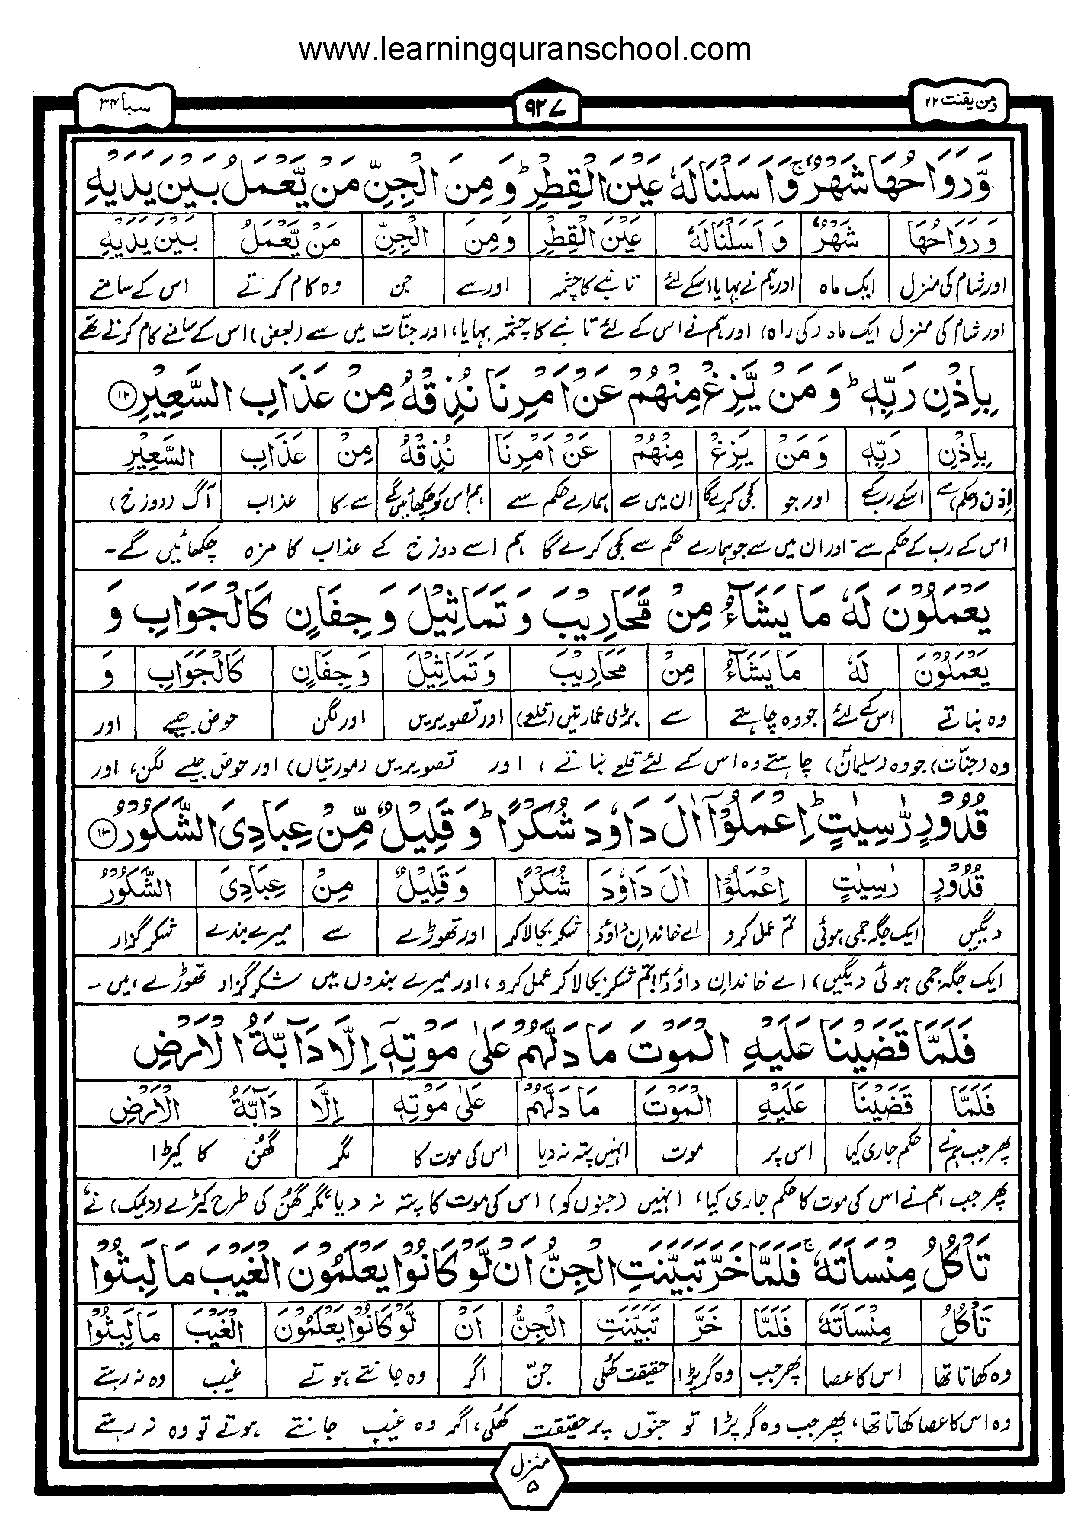 www.learningquranschool.com
ومن یقنت ۲۲
۹۲۷
سبا ۳۴
وَّرَوَاحُهَا شَهْرٌ ۚ وَاَسَلْنَا لَهٗ عَيْنَ الْقِطْرِ ؕ وَمِنَ الْجِنِّ مَنْ يَّعْمَلُ بَيْنَ يَدَيْهِ
وَرَوَاحُهَا شَهْرٌ وَاَسَلْنَا لَهٗ عَيْنَ الْقِطْرِ وَمِنَ الْجِنِّ مَنْ يَّعْمَلُ بَيْنَ يَدَيْهِ
اور شام کی منزل ایک ماہ اور ہم نے بہایا اسکے لئے تانبے کا چشمہ اور سے جن وہ کام کرتے اس کے سامنے
اور شام کی منزل ایک ماہ (کی راہ) اور ہم نے اس کے لئے تانبے کا چشمہ بہایا، اور جنّات میں سے (بعض) اس کے سامنے کام کرتے تھے
بِاِذْنِ رَبِّهٖ ؕ وَمَنْ يَّزِغْ مِنْهُمْ عَنْ اَمْرِنَا نُذِقْهُ مِنْ عَذَابِ السَّعِيْرِ ۝۱۲
بِاِذْنِ رَبِّهٖ وَمَنْ يَزِغْ مِنْهُمْ عَنْ اَمْرِنَا نُذِقْهُ مِنْ عَذَابِ السَّعِيْرِ
اذن (حکم) سے اسکے رب کے اور جو کجی کرے گا ان میں سے ہمارے حکم سے ہم اس کو چکھائیں گے سے۔کا عذاب آگ (دوزخ)
اس کے رب کے حکم سے۔ اور ان میں سے جو ہمارے حکم سے کجی کرے گا ہم اسے دوزخ کے عذاب کا مزہ چکھائیں گے۔
يَعْمَلُوْنَ لَهٗ مَا يَشَآءُ مِنْ مَّحَارِيْبَ وَتَمَاثِيْلَ وَجِفَانٍ كَالْجَوَابِ وَ
يَعْمَلُوْنَ لَهٗ مَا يَشَآءُ مِنْ مَّحَارِيْبَ وَتَمَاثِيْلَ وَجِفَانٍ كَالْجَوَابِ وَ
وہ بناتے اس کے لئے جو وہ چاہتے سے بڑی عمارتیں (قلعے) اور تصویریں اور لگن حوض جیسے اور
وہ (جنّات) جو وہ (سلیمانؑ) چاہتے وہ اس کے لئے قلعے بناتے، اور تصویریں (مورتیاں) اور حوض جیسے لگن، اور
قُدُوْرٍ رّٰسِيٰتٍ ؕ اِعْمَلُوْٓا اٰلَ دَاوٗدَ شُكْرًا ؕ وَقَلِيْلٌ مِّنْ عِبَادِيَ الشَّكُوْرُ ۝۱۳
قُدُوْرٍ رٰسِيٰتٍ اِعْمَلُوْٓا اٰلَ دَاوٗدَ شُكْرًا وَقَلِيْلٌ مِنْ عِبَادِيَ الشَّكُوْرُ
دیگیں ایک جگہ جمی ہوئی تم عمل کرو اے خاندانِ داؤدؑ شکر بجالا کر اور تھوڑے سے میرے بندے شکر گزار
ایک جگہ جمی ہوئی دیگیں، اے خاندانِ داؤدؑ! تم شکر بجالا کر عمل کرو، اور میرے بندوں میں شکر گزار تھوڑے ہیں۔
فَلَمَّا قَضَيْنَا عَلَيْهِ الْمَوْتَ مَا دَلَّهُمْ عَلٰى مَوْتِهٖٓ اِلَّا دَآبَّةُ الْاَرْضِ
فَلَمَّا قَضَيْنَا عَلَيْهِ الْمَوْتَ مَا دَلَّهُمْ عَلٰى مَوْتِهٖٓ اِلَّا دَآبَّةُ الْاَرْضِ
پھر جب ہم نے حکم جاری کیا اس پر موت انہیں پتہ نہ دیا اس کی موت کا مگر گھن کا کیڑا
پھر جب ہم نے اس کی موت کا حکم جاری کیا، انہیں (جنوں کو) اس کی موت کا پتہ نہ دیا مگر گھن کی طرح کیڑے (دیمک) نے
تَاْكُلُ مِنْسَاَتَهٗ ۚ فَلَمَّا خَرَّ تَبَيَّنَتِ الْجِنُّ اَنْ لَّوْ كَانُوْا يَعْلَمُوْنَ الْغَيْبَ مَا لَبِثُوْا
تَاْكُلُ مِنْسَاَتَهٗ فَلَمَّا خَرَّ تَبَيَّنَتِ الْجِنُّ اَنْ لَّوْ كَانُوْا يَعْلَمُوْنَ الْغَيْبَ مَا لَبِثُوْا
وہ کھاتا تھا اس کا عصا پھر جب وہ گر پڑا حقیقت کھلی جنّ اگر وہ جانتے ہوتے غیب وہ نہ رہتے
وہ اس کا عصا کھاتا تھا، پھر جب وہ گر پڑا تو جنّوں پر حقیقت کھلی، اگر وہ غیب جانتے ہوتے تو وہ نہ رہتے
منزل
۵